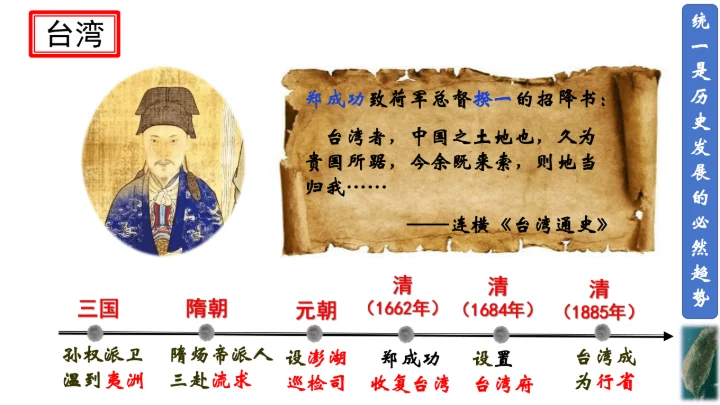 台湾
郑成功致荷军总督揆一的招降书：
台湾者，中国之土地也，久为
贵国所踞，今余既来索，则地当
归我……
——连横《台湾通史》
统一是历史发展的必然趋势
三国
隋朝
元朝
清
（1662年）
清
（1684年）
清
（1885年）
孙权派卫
温到夷洲
隋炀帝派人
三赴流求
设澎湖
巡检司
郑成功
收复台湾
设置
台湾府
台湾成
为行省